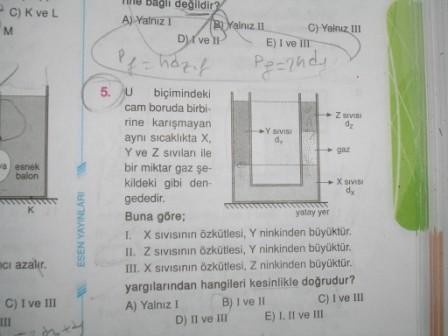 rine bağlı değildir?
C) K ve L
A) Yalnız I
B) Yalnız II
C) Yalnız III
M
D) I ve II
E) I ve III
5. U biçimindeki
cam boruda birbi-
rine karışmayan
aynı sıcaklıkta X,
Y ve Z sıvıları ile
bir miktar gaz şe-
kildeki gibi den-
gededir.
Y sıvısı
dY
Z sıvısı
dZ
gaz
X sıvısı
dX
yatay yer
esnek
balon
K
ESEN YAYINLARI
Buna göre;
I. X sıvısının özkütlesi, Y ninkinden büyüktür.
II. Z sıvısının özkütlesi, Y ninkinden büyüktür.
III. X sıvısının özkütlesi, Z ninkinden büyüktür.
yargılarından hangileri kesinlikle doğrudur?
A) Yalnız I
B) I ve II
C) I ve III
D) II ve III
E) I. II ve III
cı azalır.
C) I ve III
III